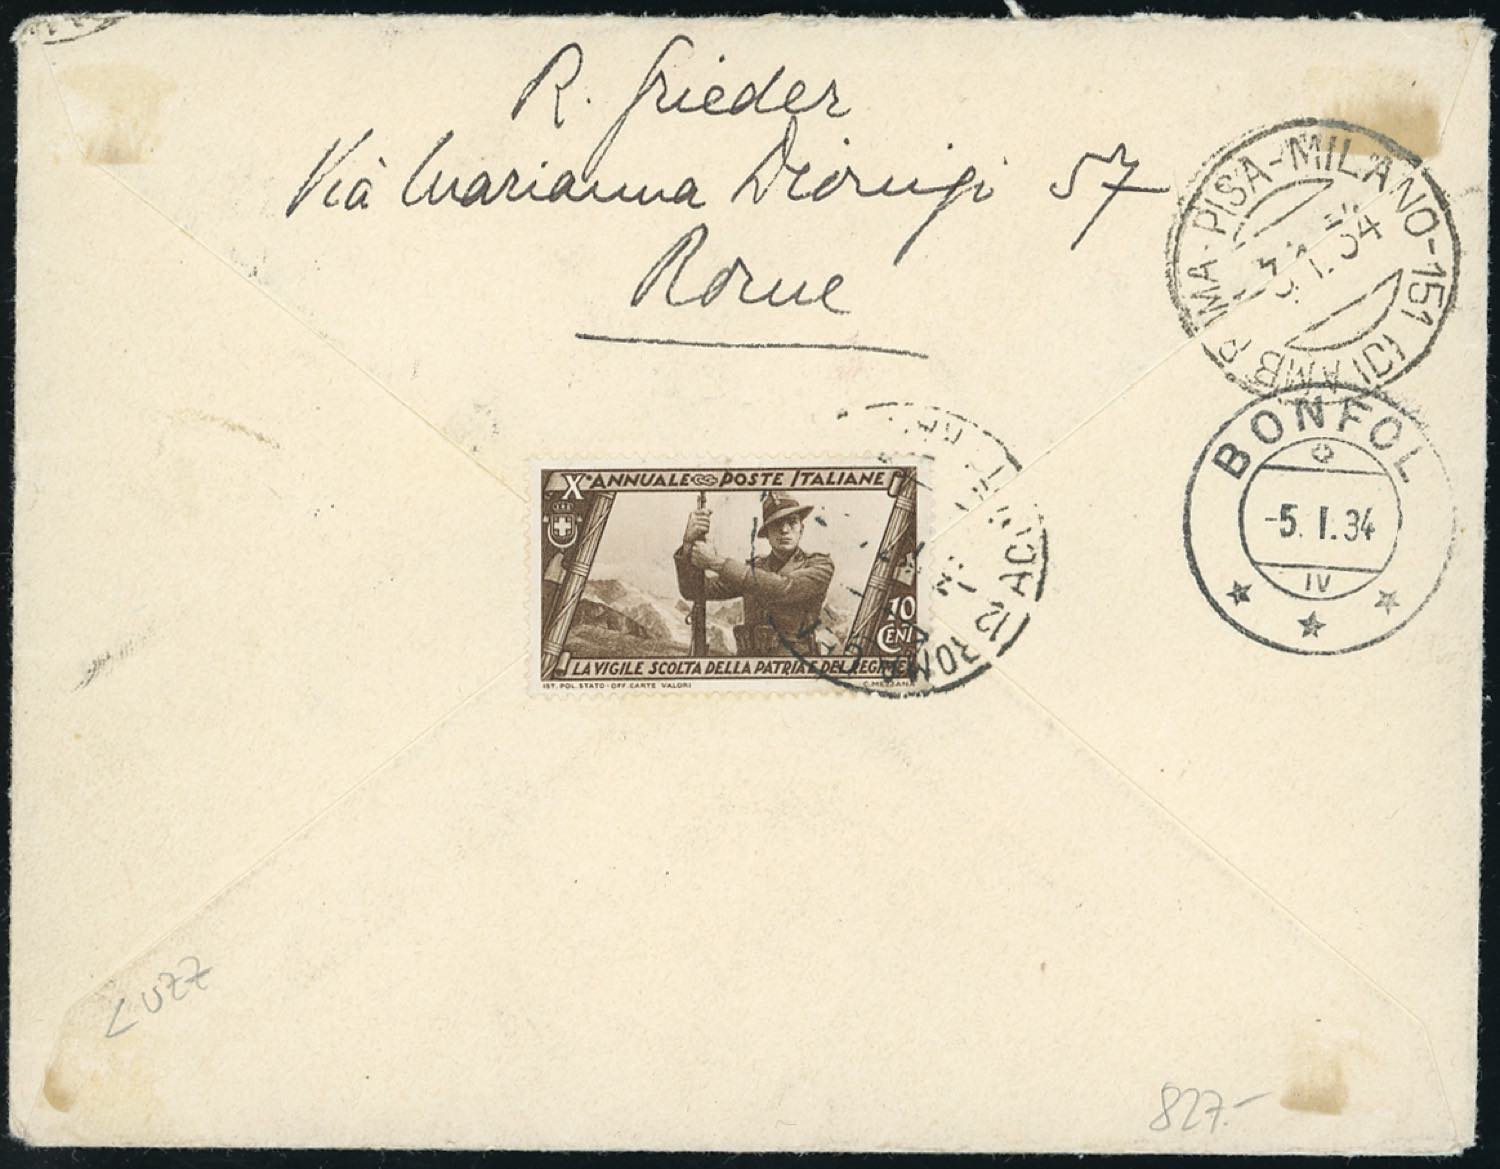 R. Grieder
Vià Marianna Dionigi 57
Rome
ROMA-PISA-MILANO-151 (C) AMB
3.1.34
BONFOL
-5.I.34
IV
X° ANNUALE POSTE ITALIANE
10
CENT
LA VIGILE SCOLTA DELLA PATRIA E DEL REGIME
IST. POL. STATO-OFF. CARTE VALORI
C. MEZZANA
ROMA
12
827.-